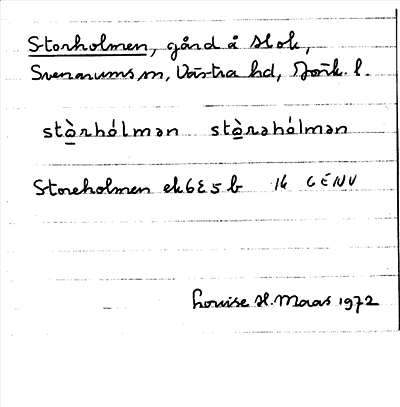 Storholmen, gård å Stok,
Svenarums sn, Västra hd, Jönk. l.
stὰrhólmən stὰrəhólmən
Storeholmen ek 6E5b 14 CENV
Louise H. Maas 1972